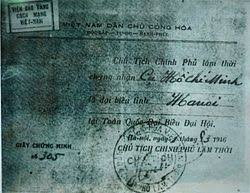 VIỆN BẢO TÀNG
CÁCH MẠNG
VIỆT-NAM
VIỆT-NAM DÂN CHỦ CỘNG HÒA
ĐỘC-LẬP — TỰ-DO — HẠNH-PHÚC
Chủ Tịch Chính Phủ lâm thời
chứng nhận Cụ Hồ Chí Minh
là đại biểu tỉnh Hanoi
tại Toàn Quốc Đại Biểu Đại Hội.
GIẤY CHỨNG MINH
số 305
Hà-nội, ngày tháng 3 1946
CHỦ TỊCH CHÍNH PHỦ LÂM THỜI